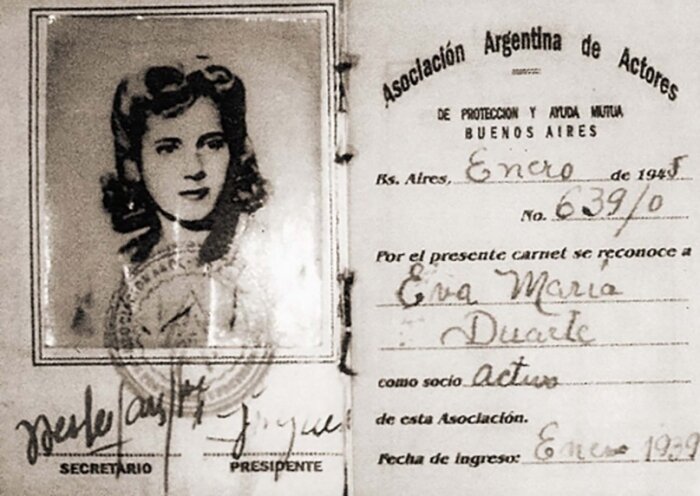 SECRETARIO
PRESIDENTE
Asociación Argentina de Actores
DE PROTECCION Y AYUDA MUTUA
BUENOS AIRES
Bs. Aires, Enero de 1945
No. 639/0
Por el presente carnet se reconoce a
Eva María
Duarte
como socio activo
de esta Asociación.
Fecha de ingreso: Enero 1939